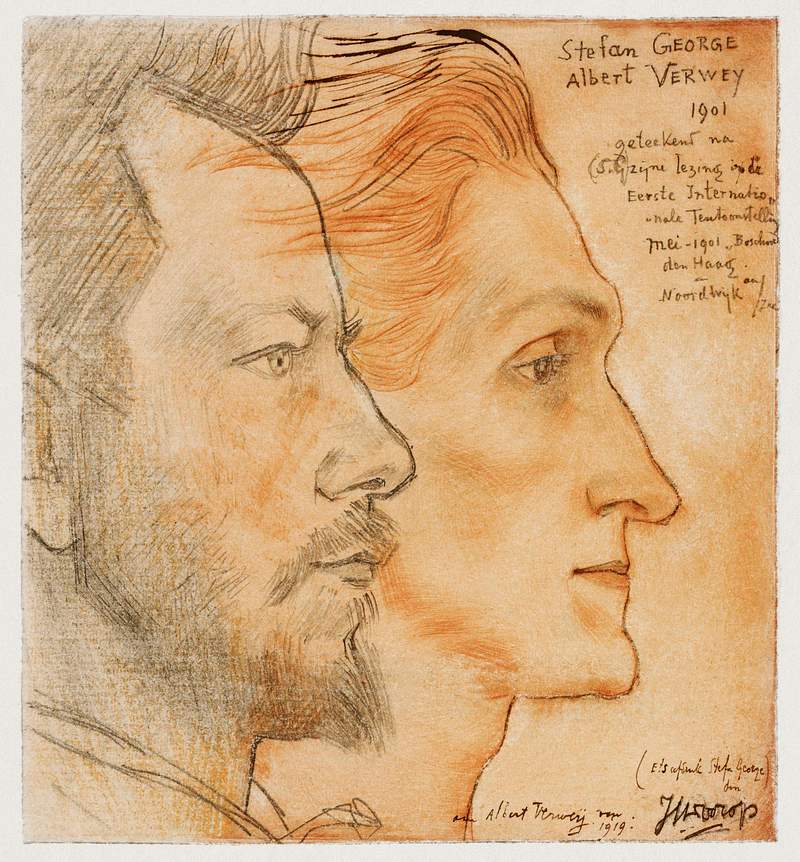 Stefan GEORGE
Albert VERWEY
1901
geteekend na
(S.G) zijne lezing op de
Eerste Internatio-
nale Tentoonstelling
Mei - 1901 „Boschwe
den Haag.
Noordwijk aan / Zee
Stefan George)
JthToorop
aan Albert Verweij van
1919.